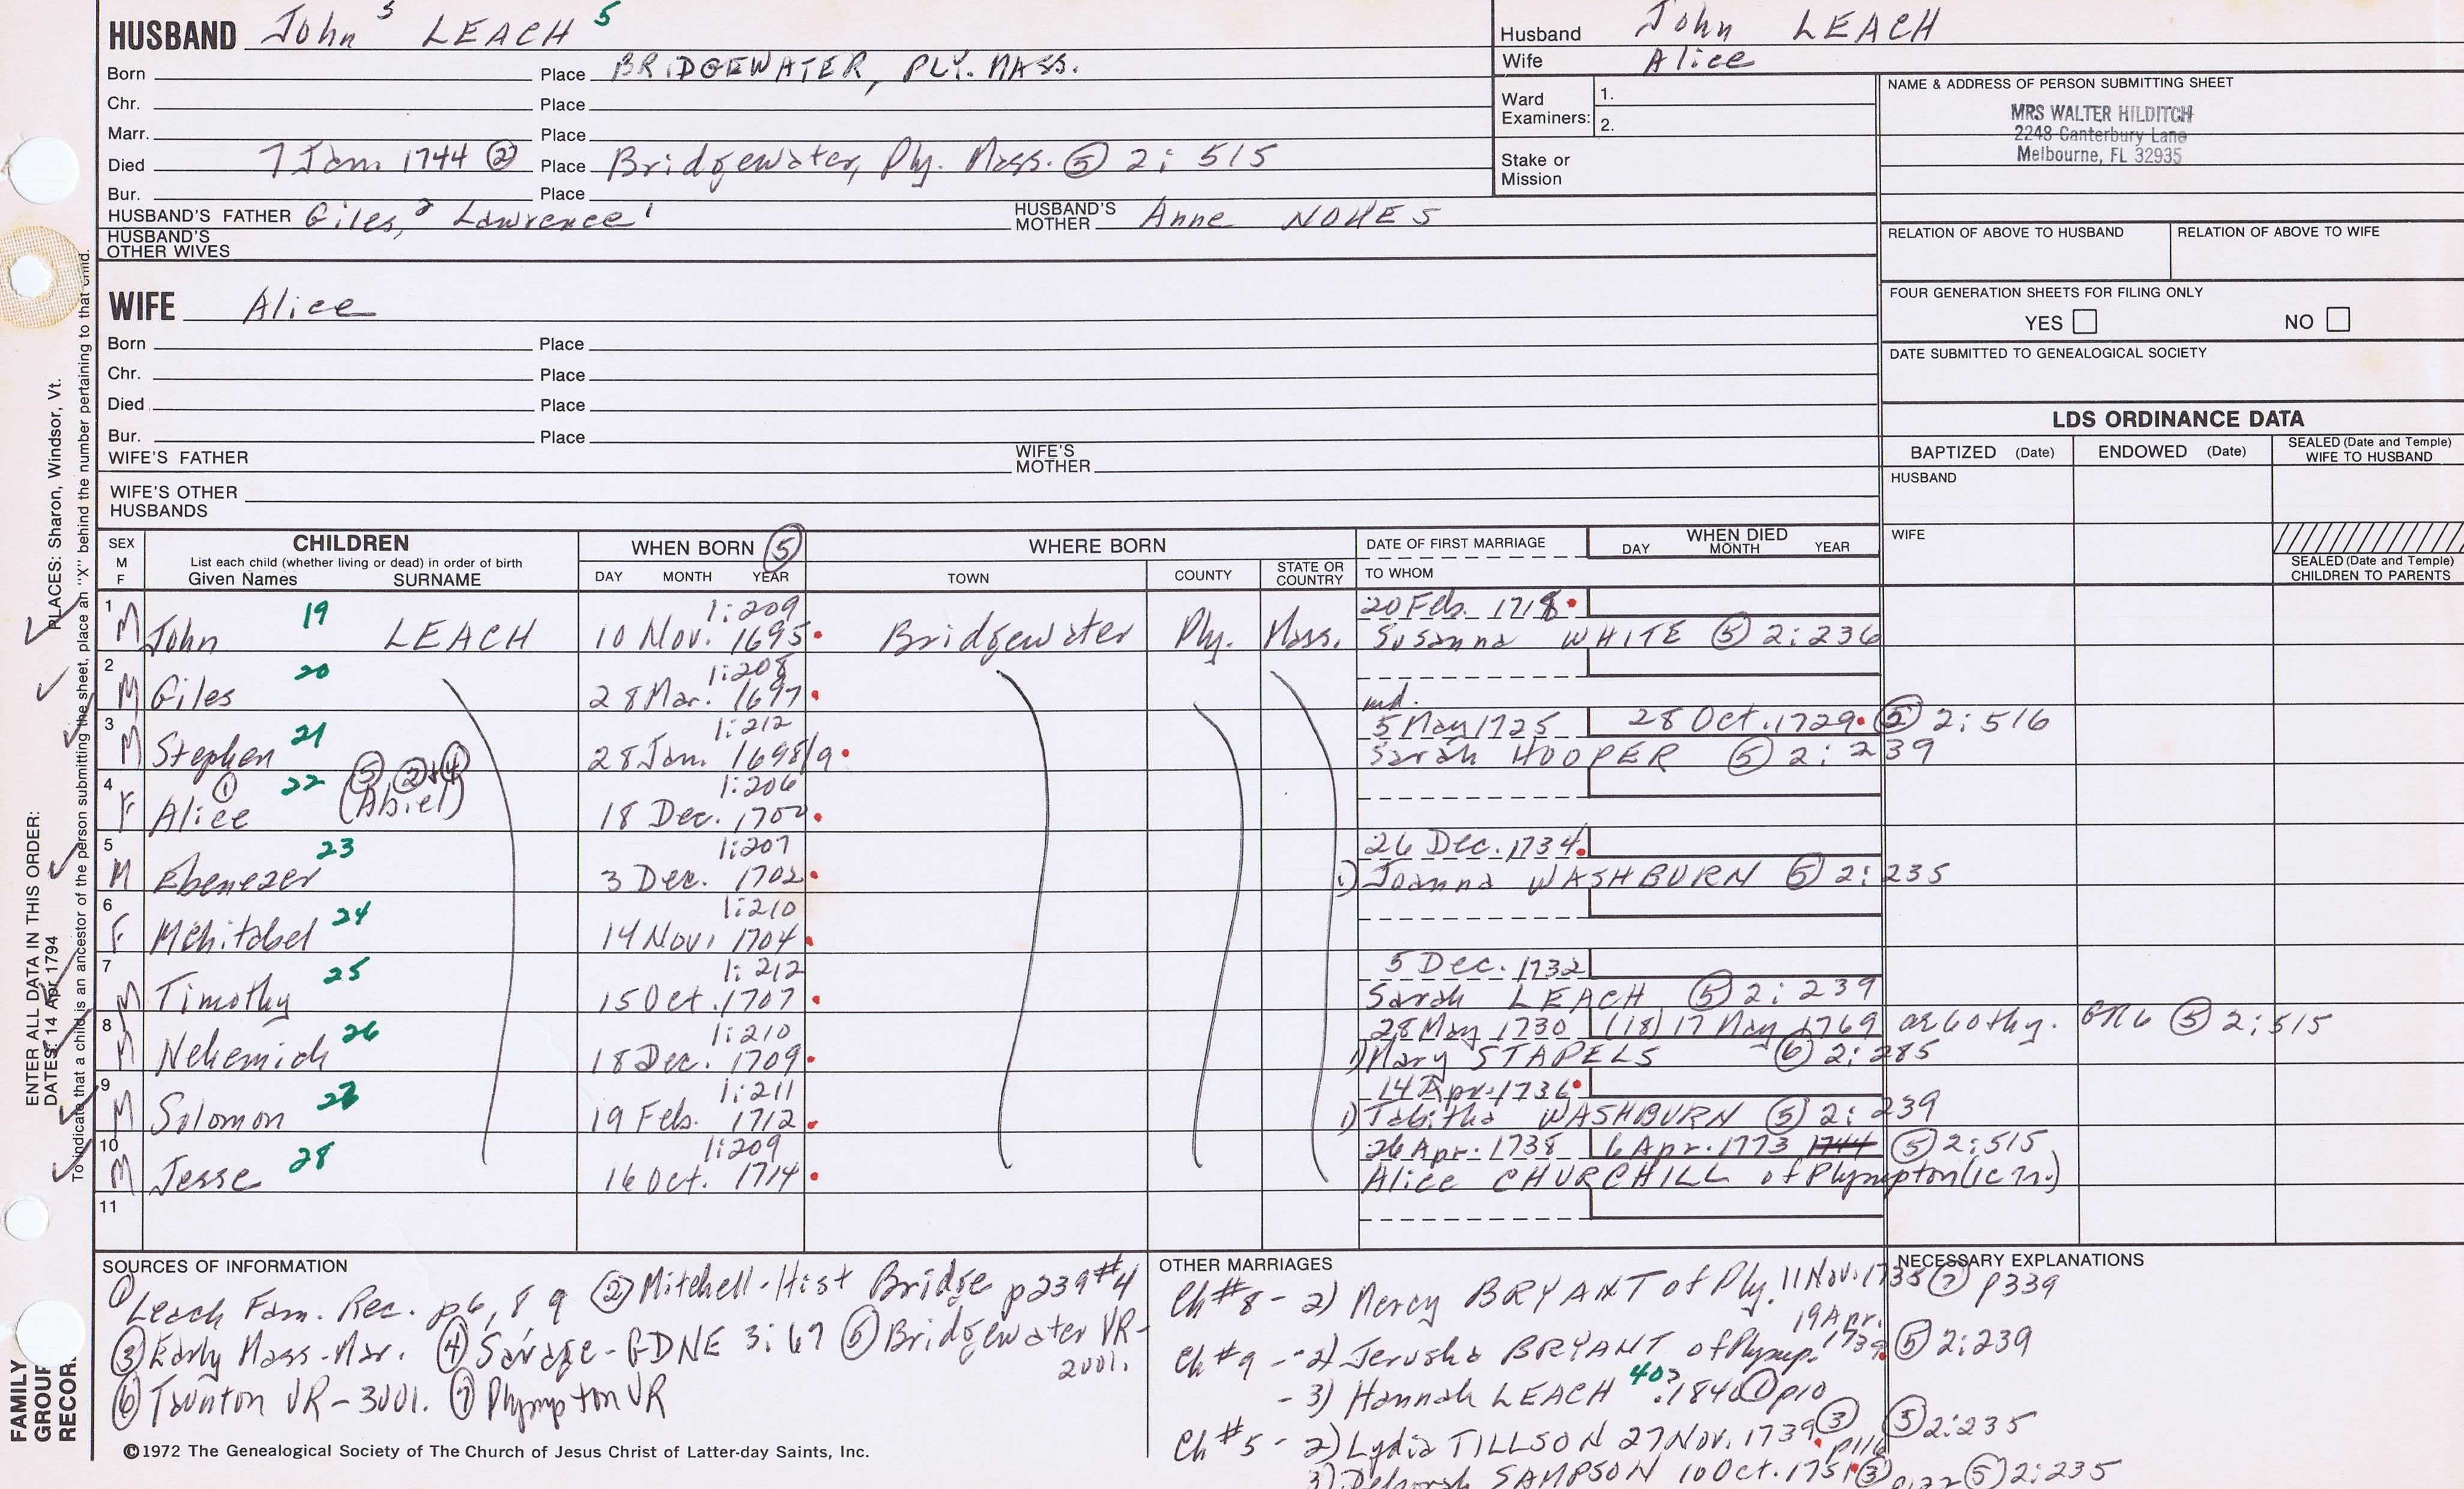 HUSBAND John 3 LEACH 5
Born Place BRIDGEWATER, PLY. MASS.
Chr. Place
Marr. Place
Died 7 Jan. 1744 ② Place Bridgewater, Ply. Mass. ⑤ 2: 515
Bur. Place
HUSBAND'S FATHER Giles,2 Lawrence1 HUSBAND'S MOTHER Anne NOKES
HUSBAND'S OTHER WIVES
Husband John LEACH
Wife Alice
Ward Examiners: 1.
2.
Stake or Mission
NAME & ADDRESS OF PERSON SUBMITTING SHEET
MRS WALTER HILDITCH
2248 Canterbury Lane
Melbourne, FL 32935
RELATION OF ABOVE TO HUSBAND RELATION OF ABOVE TO WIFE
FOUR GENERATION SHEETS FOR FILING ONLY
YES NO
DATE SUBMITTED TO GENEALOGICAL SOCIETY
WIFE Alice
Born Place
Chr. Place
Died Place
Bur. Place
WIFE'S FATHER WIFE'S MOTHER
WIFE'S OTHER HUSBANDS
LDS ORDINANCE DATA
BAPTIZED (Date) ENDOWED (Date) SEALED (Date and Temple) WIFE TO HUSBAND
HUSBAND
WIFE
SEALED (Date and Temple) CHILDREN TO PARENTS
SEX M F
CHILDREN
List each child (whether living or dead) in order of birth
Given Names SURNAME
WHEN BORN ⑤
DAY MONTH YEAR
WHERE BORN
TOWN COUNTY STATE OR COUNTRY
DATE OF FIRST MARRIAGE
TO WHOM
WHEN DIED
DAY MONTH YEAR
1 19 1:209 20 Feb. 1718
M John LEACH 10 Nov. 1695 Bridgewater Ply. Mass. Susanna WHITE ⑤ 2:236
2 20 1:208
M Giles 28 Mar. 1697 md.
3 21 1:212 5 May 1725 28 Oct. 1729 ⑤ 2:516
M Stephen 28 Jan. 1698/9 Sarah HOOPER ⑤ 2:239
4 ① 22 ⑤ ②+④ 1:206
F Alice (Abiel) 18 Dec. 1700
5 23 1:207 26 Dec. 1734
M Ebenezer 3 Dec. 1702 1) Joanna WASHBURN ⑤ 2:235
6 24 1:210
F Mehitabel 14 Nov. 1704
7 25 1:212 5 Dec. 1732
M Timothy 15 Oct. 1707 Sarah LEACH ⑤ 2:239
8 26 1:210 28 May 1730 (18) 17 May 1769 ae 60thy. GR6 ⑤ 2:515
M Nehemiah 18 Dec. 1709 1) Mary STAPELS ⑥ 2:285
9 27 1:211 14 Apr. 1736
M Solomon 19 Feb. 1712 1) Tabitha WASHBURN ⑤ 2:239
10 28 1:209 26 Apr. 1738 6 Apr. 1773 1744 ⑤ 2:515
M Jesse 16 Oct. 1714 Alice CHURCHILL of Plympton
11
SOURCES OF INFORMATION
① Leach Fam. Rec. p6, 8 9 ② Mitchell-Hist Bridge p239 #4
③ Early Mass. Mar. ④ Savage-GDNE 3:67 ⑤ Bridgewater VR-2vol.
⑥ Taunton VR-3vol. ⑦ Plympton VR
OTHER MARRIAGES
Ch #8 - 2) Mercy BRYANT of Ply. 11 Nov. 1735 ⑦ p339
Ch #9 - 2) Jerusha BRYANT of Plymp. 19 Apr. 1739 ⑤ 2:239
- 3) Hannah LEACH 40? ① p10
Ch #5 - 2) Lydia TILLSON 27 Nov. 1739 ③ p116 ⑤ 2:235
3) Deborah SAMPSON 10 Oct. 1751 ③ ⑤ 2:235
NECESSARY EXPLANATIONS
©1972 The Genealogical Society of The Church of Jesus Christ of Latter-day Saints, Inc.
FAMILY GROUP RECOR
ENTER ALL DATA IN THIS ORDER:
DATES: 14 Apr 1794
PLACES: Sharon, Windsor, Vt.
To indicate that a child is an ancestor of the person submitting the sheet, place an "X" behind the number pertaining to that child.